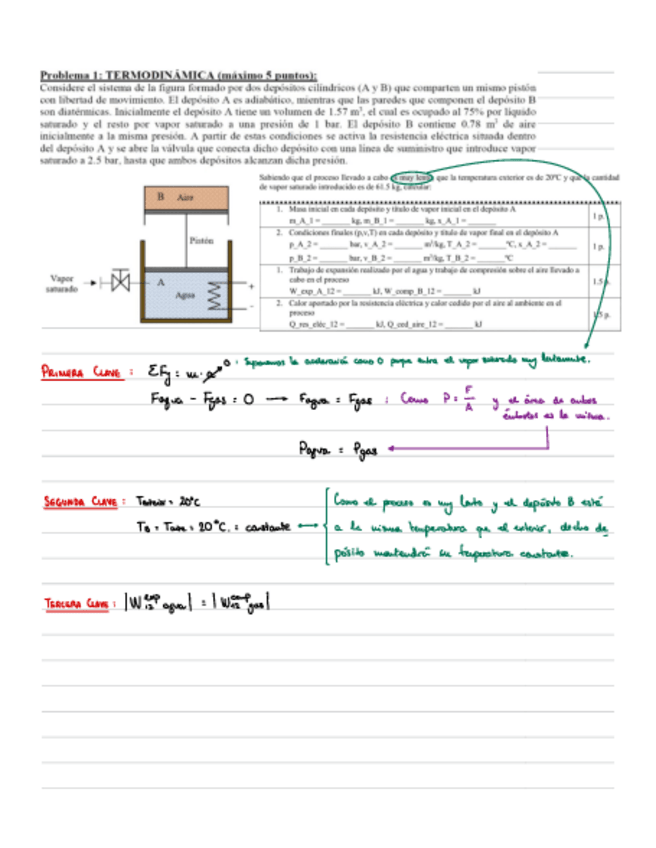 Problema 1: TERMODINÁMICA (máximo 5 puntos):
Considere el sistema de la figura formado por dos depósitos cilíndricos (A y B) que comparten un mismo pistón
con libertad de movimiento. El depósito A es adiabático, mientras que las paredes que componen el depósito B
son diatérmicas. Inicialmente el depósito A tiene un volumen de 1.57 m³, el cual es ocupado al 75% por líquido
saturado y el resto por vapor saturado a una presión de 1 bar. El depósito B contiene 0.78 m³ de aire
inicialmente a la misma presión. A partir de estas condiciones se activa la resistencia eléctrica situada dentro
del depósito A y se abre la válvula que conecta dicho depósito con una línea de suministro que introduce vapor
saturado a 2.5 bar, hasta que ambos depósitos alcanzan dicha presión.
Sabiendo que el proceso llevado a cabo es muy lento, que la temperatura exterior es de 20ºC y que la cantidad
de vapor saturado introducido es de 61.5 kg, calcular:
B Aire
Pistón
Vapor
saturado
A
Agua
+
-
1. Masa inicial en cada depósito y título de vapor inicial en el depósito A
m_A_1 = ______ kg, m_B_1 = ______ kg, x_A_1 = ______
1 p.
2. Condiciones finales (p,v,T) en cada depósito y título de vapor final en el depósito A
p_A_2 = ______ bar, v_A_2 = ______ m³/kg, T_A_2 = ______ºC, x_A_2 = ______
p_B_2 = ______ bar, v_B_2 = ______ m³/kg, T_B_2 = ______ºC
1 p.
1. Trabajo de expansión realizado por el agua y trabajo de compresión sobre el aire llevado a
cabo en el proceso
W_exp_A_12 = ______ kJ, W_comp_B_12 = ______ kJ
1.5 p.
2. Calor aportado por la resistencia eléctrica y calor cedido por el aire al ambiente en el
proceso
Q_res_eléc_12 = ______ kJ, Q_ced_aire_12 = ______ kJ
1.5 p.
PRIMERA CLAVE : ΣFy = m · a 0 : Suponemos la aceleración como 0 porque entra el vapor saturado muy lentamente.
Fagua - Fgas = 0 → Fagua = Fgas : Como P = F/A y el área de ambos
émbolos es la misma.
Pagua = Pgas
SEGUNDA CLAVE : Texterior = 20ºC
TB = Taire = 20ºC. = constante
Como el proceso es muy lento y el depósito B está
a la misma temperatura que el exterior, dicho de-
pósito mantendrá su temperatura constante.
TERCERA CLAVE : |W12 exp agua| = |W12 comp gas|